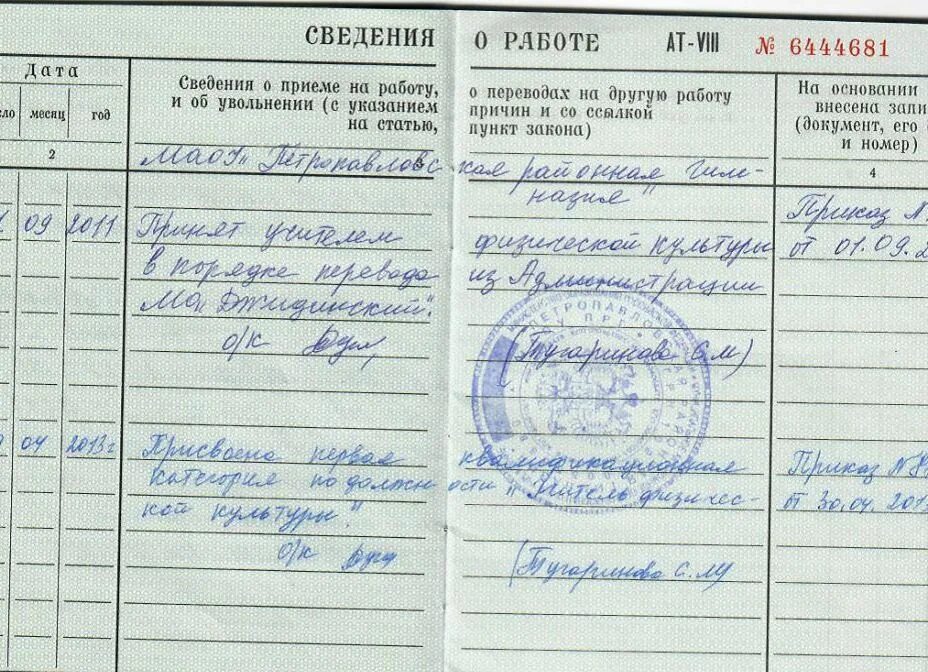 СВЕДЕНИЯ О РАБОТЕ АТ-VIII № 6444681
Дата
месяц год
Сведения о приеме на работу,
и об увольнении (с указанием
на статью,
о переводах на другую работу
причин и со ссылкой
пункт закона)
На основании
внесена запи
(документ, его
и номер)
2
4
МАОУ "Петропавловская районная Гим-
назия"
09 2011 Принят учителем физической культуры Приказ №
в порядке перевода из Администрации от 01.09.2
МО "Джидинский".
о/к (Тугаринова С.М)
04 2013г Присвоена первая квалификационная Приказ №
категория по должности "Учитель физичес- от 30.04.201
кой культуры".
о/к (Тугаринова С.М)